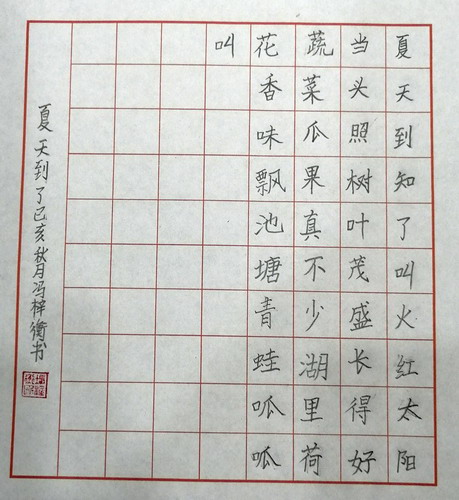 夏天到知了叫火红太阳
当头照树叶茂盛长得好
蔬菜瓜果真不少湖里荷
花香味飘池塘青蛙呱呱
叫
夏天到了己亥秋月冯梓衡书